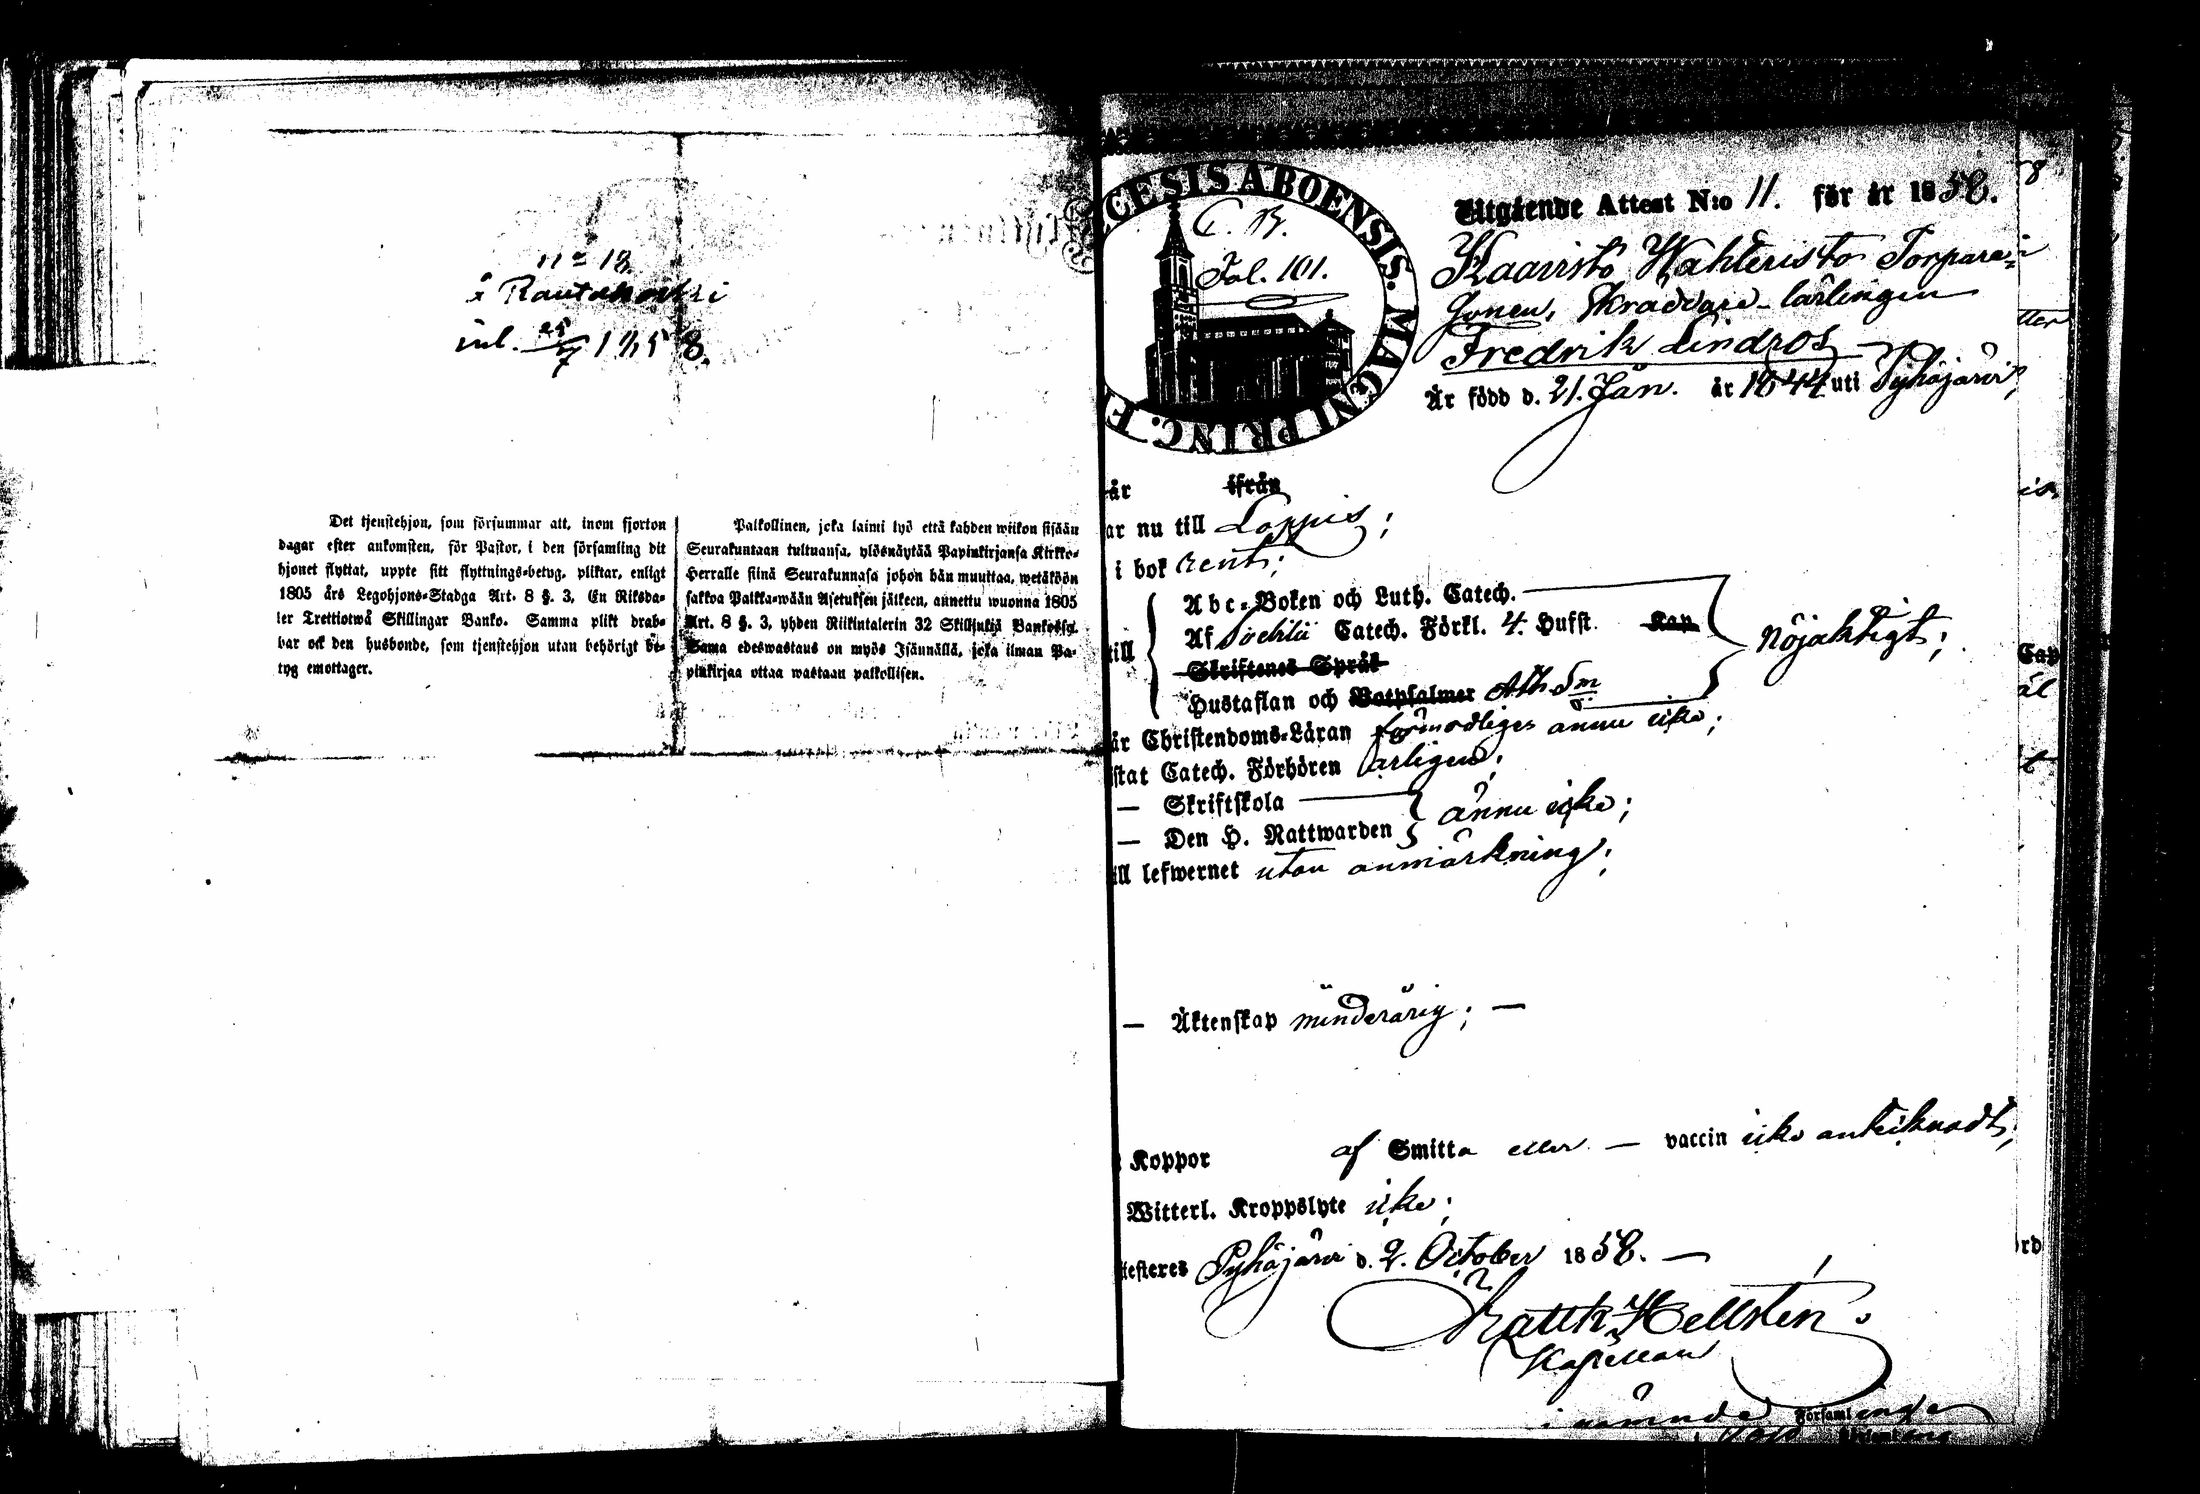 n:o 18
å Rautakoski
inl. 25/7 1858.
Det tjenstehjon, som försummar att, inom fjorton
dagar efter ankomsten, för Pastor, i den församling dit
hjonet flyttat, uppte sitt flyttnings-betyg, pliktar, enligt
1805 års Legohjons-Stadga Art. 8 §. 3, En Riksda-
ler Trettiotwå Skillingar Banko. Samma plikt drab-
bar ock den husbonde, som tjenstehjon utan behörigt be-
tyg emottager.
Palkollinen, joka laimi lyö että kahden wiikon sisään
Seurakuntaan tultuansa, ylösnäytää Papinkirjansa Kirkko-
Herralle siinä Seurakunnasa johon hän muuttaa, wetäköön
sakkoa Palkka-wään Asetuksen jälkeen, annettu wuonna 1805
Art. 8 §. 3, yhden Riikintalerin 32 Skillinkiä Bankossa.
Sama edeswastaus on myös Isännällä, joka ilman Pa-
pinkirjaa ottaa wastaan palkollisen.
CESIS ABOENSIS. MAGNI PRINC. F
C. B.
Fol. 101.
Utgående Attest N:o 11. för år 1858.
Kaaristo Wahteristo Torpare-
Sonen, Skraddare-lärlingen
Fredrik Lindros
Är född d. 21. Jan. år 1844 uti Pyhäjärvi,
är ifrån
ar nu till Loppis;
i bok rent;
till
Abc-Boken och Luth. Catech.
Af Svebilii Catech. Förkl. 4. Hufst. Kap
Skriftenes Språk
Hustaflan och Botpsalmer Ath. Sm
nöjaktigt;
är Christendoms-Läran förmodligen ännu icke;
istat Catech. Förhören årligen;
— Skriftskola
— Den H. Nattwarden
ännu icke;
ill lefwernet utan anmärkning;
— Äktenskap minderårig; —
Koppor af Smitta eller — vaccin icke antecknadt;
Witterl. Kroppslyte icke;
testeres Pyhäjärvi d. 2. October 1858. —
Hellstén
Kapellan
i nämnde Församl